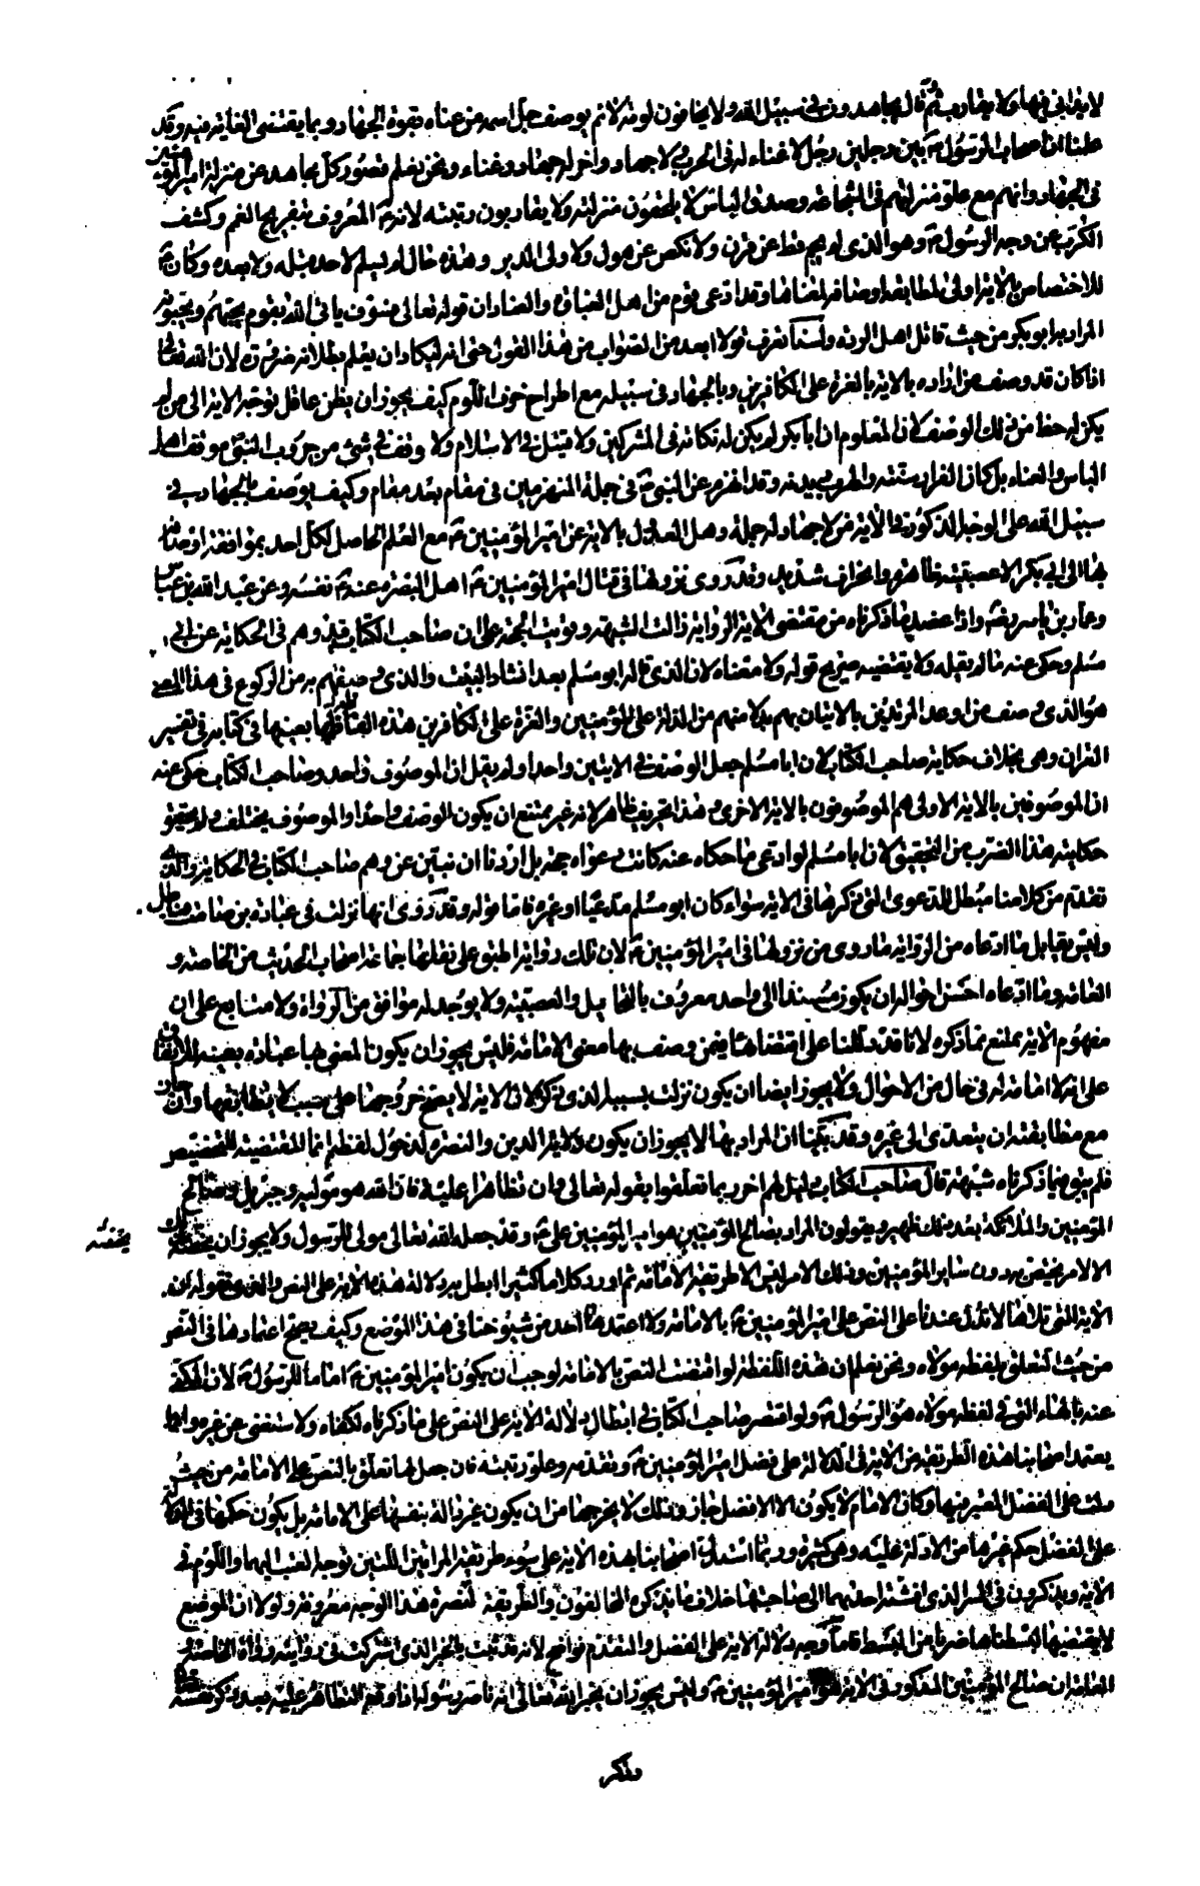 لا يدانى فيها ولا يقارب ثم قال يجاهدون في سبيل الله ولا يخافون لومة لائم يوصف جل اسمه من عناه بقوة الجهاد وبما يقتضى الغاية فيه وقد
علمنا ان اصحاب الرسول م بين رجلين رجل لا غناء له في الحرب ولا جهاد واخر له جهاد وغناء ونحن نعلم قصور كل مجاهد عن منزلة امير المؤمنين
في الجهاد وانهم مع علو منزلتهم في الشجاعة وصدق الباس لا يلحقون منزلته ولا يقاربون رتبته لانه م المعروف بتفريج الغم وكشف
الكرب عن وجه الرسول م وهو الذى لم يحجم قط عن قرن ولا نكص عن هول ولا ولى الدبر وهذه حال لم يسلم لاحد قبله ولا بعده وكان م
للاختصاص بالاية اولى لمطابقة اوصافه لمعناها وقد ادعى قوم من اهل الغباوة والعناد ان قوله تعالى فسوف ياتى الله بقوم يحبهم ويحبونه
المراد به ابو بكر من حيث قاتل اهل الردة ولسنا نعرف قولا ابعد من الصواب من هذا القول حتى انه ليكاد ان يعلم بطلانه ضرورة لان الله تعالى
اذا كان قد وصف من اراده بالاية بالعزة على الكافرين وبالجهاد في سبيله مع اطراح خوف اللوم كيف يجوز ان يظن عاقل توجه الاية الى من لم
يكن له حظ من ذلك الوصف لان المعلوم ان ابا بكر لم يكن له نكاية في المشركين ولا قتيل في الاسلام ولا وقف في شيء من حروب النبي م موقف اهل
الباس والعناء بل كان الفرار سنته والهرب ديدنه وقد انهزم عن النبي م في جملة المنهزمين في مقام بعد مقام وكيف يوصف بالجهاد في
سبيل الله على الوجه المذكور في الاية من لا جهاد له جملة وهل العدول بالاية عن امير المؤمنين م مع العلم الحاصل لكل احد بموافقة اوصافه
بها الى ابي بكر الا عصبية ظاهرة وانحراف شديد وقد روى نزولها في قتال امير المؤمنين م اهل البصرة عنه م نفسه وعن عبد الله بن عباس
وعمار بن ياسر رضه واذا عضد ما ذكرناه من مقتضى الاية الرواية زالت الشبهة وقويت الحجة على ان صاحب الكتاب قد وهم في الحكاية عن ابي
مسلم وحكى عنه ما لم يقله ولا يقتضيه صريح قوله ولا معناه لان الذى قاله ابو مسلم بعد انشاد البيت والذى وصفهم به من الركوع في هذا الموضع
هو الذى وصف من وعد المرتدين بالاتيان بهم بدلا منهم من الذلة على المؤمنين والعزة على الكافرين هذه الفاظها بعينها في كتابه في تفسير
القران وهى بخلاف حكاية صاحب الكتاب لان ابا مسلم جعل الوصف في الايتين واحدا ولم يقل ان الموصوف واحد وصاحب الكتاب حكى عنه
ان الموصوفين بالاية الاولى هم الموصوفون بالاية الاخرى وهذا تحريف ظاهر لانه غير ممتنع ان يكون الوصف واحدا والموصوف يختلف ولم يحقق
حكايته هذا الضرب من التحقيق لان ابا مسلم لو ادعى ما حكاه عنه كانت دعواه حجة بل اردنا ان نبين عن وهم صاحب الكتاب في الحكاية والذى
تقدم من كلامنا مبطل للدعوى التى ذكرها في الاية سواء كان ابو مسلم مدعيا او غيره فاما قوله وقد روى انها نزلت في عبادة بن صامت فباطل
وليس يقابل ما ادعاه من الرواية ما روى من نزولها في امير المؤمنين م لان تلك رواية اطبق على نقلها جماعة اصحاب الحديث من الخاصة و
العامة وما ادعاه احسن احواله ان يكون مسندا الى واحد معروف بالتحامل والعصبية ولا يوجد له موافق من الرواة ولا متابع على ان
مفهوم الاية يمتنع مما ذكره لانا قد دللنا على اقتضائها فيمن وصف بها معنى الامامة فليس يجوز ان يكون المعنى بها عبادة بعينه للاتفاق
على انه لا امامة له في حال من الاحوال ولا يجوز ايضا ان يكون نزلت بسببه الذى ذكر لان الاية لا يصح خروجها على سبب لا يطابقها وان جاز
مع مطابقته ان يتعدى الى غيره وقد بينا ان المراد بها لا يجوز ان يكون ولاية الدين والنصرة لدخول لفظة انما المقتضية للتخصيص
فلم يبق فيما ذكرناه شبهة قال صاحب الكتاب دليل لهم اخر ربما تعلقوا بقوله تعالى وان تظاهرا عليه فان الله هو موليه وجبريل وصالح
المؤمنين والملائكة بعد ذلك ظهير ويقولون المراد بصالح المؤمنين هو امير المؤمنين علي م وقد جعله الله تعالى مولى للرسول ولا يجوز ان يخصه بذلك
يخصه
الا لامر يختص به دون سائر المؤمنين وذلك الامر ليس الا طريقة الامامة ثم اورد كلاما كثيرا ابطل به دلالة هذه الاية على النص والذى نقوله ان
الاية التى تلاها لا تدل عندنا على النص على امير المؤمنين م بالامامة ولا اعتمدها احد من شيوخنا في هذا الموضع وكيف يصح اعتمادها في النص
من حيث التعلق بلفظه مولاه ونحن نعلم ان هذه اللفظة لو اقتضت النص بالامامة لوجب ان يكون امير المؤمنين م اماما للرسول م لان المكنى
عنه بالهاء التى في لفظة مولاه هو الرسول م ولو اقتصر صاحب الكتاب في ابطال دلالة الاية على النص على ما ذكرناه لكفاه ولا ستغنى عن غيره وانما
يعتمد اصحابنا هذه الطريقة من الاية في الدلالة على فضل امير المؤمنين م وتقدمه وعلو رتبته فان جعل لها تعلق بالنص على الامامة من حيث
دلت على الفضل المعتبر فيها وكان الامام لا يكون الا الافضل جاز وذلك لا يخرجها من ان يكون غير دالة بنفسها على الامامة بل يكون حكمها في الدلالة
على الفضل حكم غيرها من الادلة عليه وهى كثيرة وربما استدل اصحابنا بهذه الاية على سوء طريقة المراتين اللتين توجه العتب اليهما واللوم في
الاية ويذكرون في السر الذى افشته احديهما الى صاحبتها خلاف ما يذكره المخالفون والطريقة لنصرة هذا الوجه معروفة ولولا ان الموضع
لا يقتضيها لبسطناها ضربا من البسط فاما وجه دلالة الاية على الفضل والتقدم فواضح لانه قد ثبت بالخبر الذى اشتركت في روايته رواة الخاصة و
العامة ان صالح المؤمنين المذكور في الاية هو امير المؤمنين م وليس يجوز ان يخبر الله تعالى انه ناصر رسوله اذا وقع التظاهر عليه بعد ذكر نفسه
وذكر